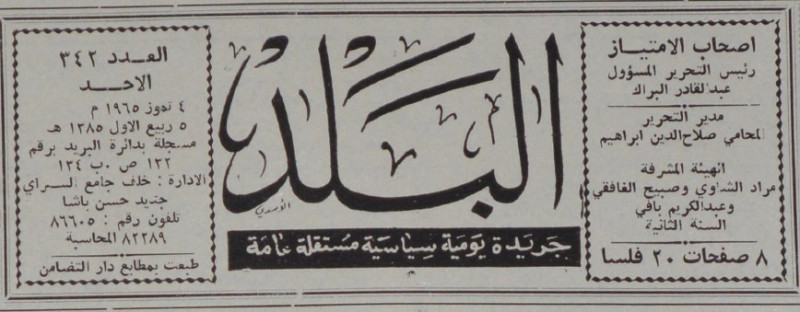 اصحاب الامتياز
رئيس التحرير المسؤول
عبدالقادر البراك
مدير التحرير
المحامي صلاح‌الدين ابراهيم
الهيئة المشرفة
مراد الشاوي وصبيح الغافقي
وعبدالكريم بافي
السنة الثانية
٨ صفحات ٢٠ فلسا
البلد
جريدة يومية سياسية مستقلة عامة
العدد ٣٤٢
الاحد
٤ تموز ١٩٦٥ م
٥ ربيع الاول ١٣٨٥ هـ
مسجلة بدائرة البريد برقم
١٢٢ ص.ب ١٣٤
الادارة : خلف جامع السراي
جديد حسن باشا
تلفون رقم : ٨٦٦٠٥
٨٢٢٨٩ المحاسبة
طبعت بمطابع دار التضامن